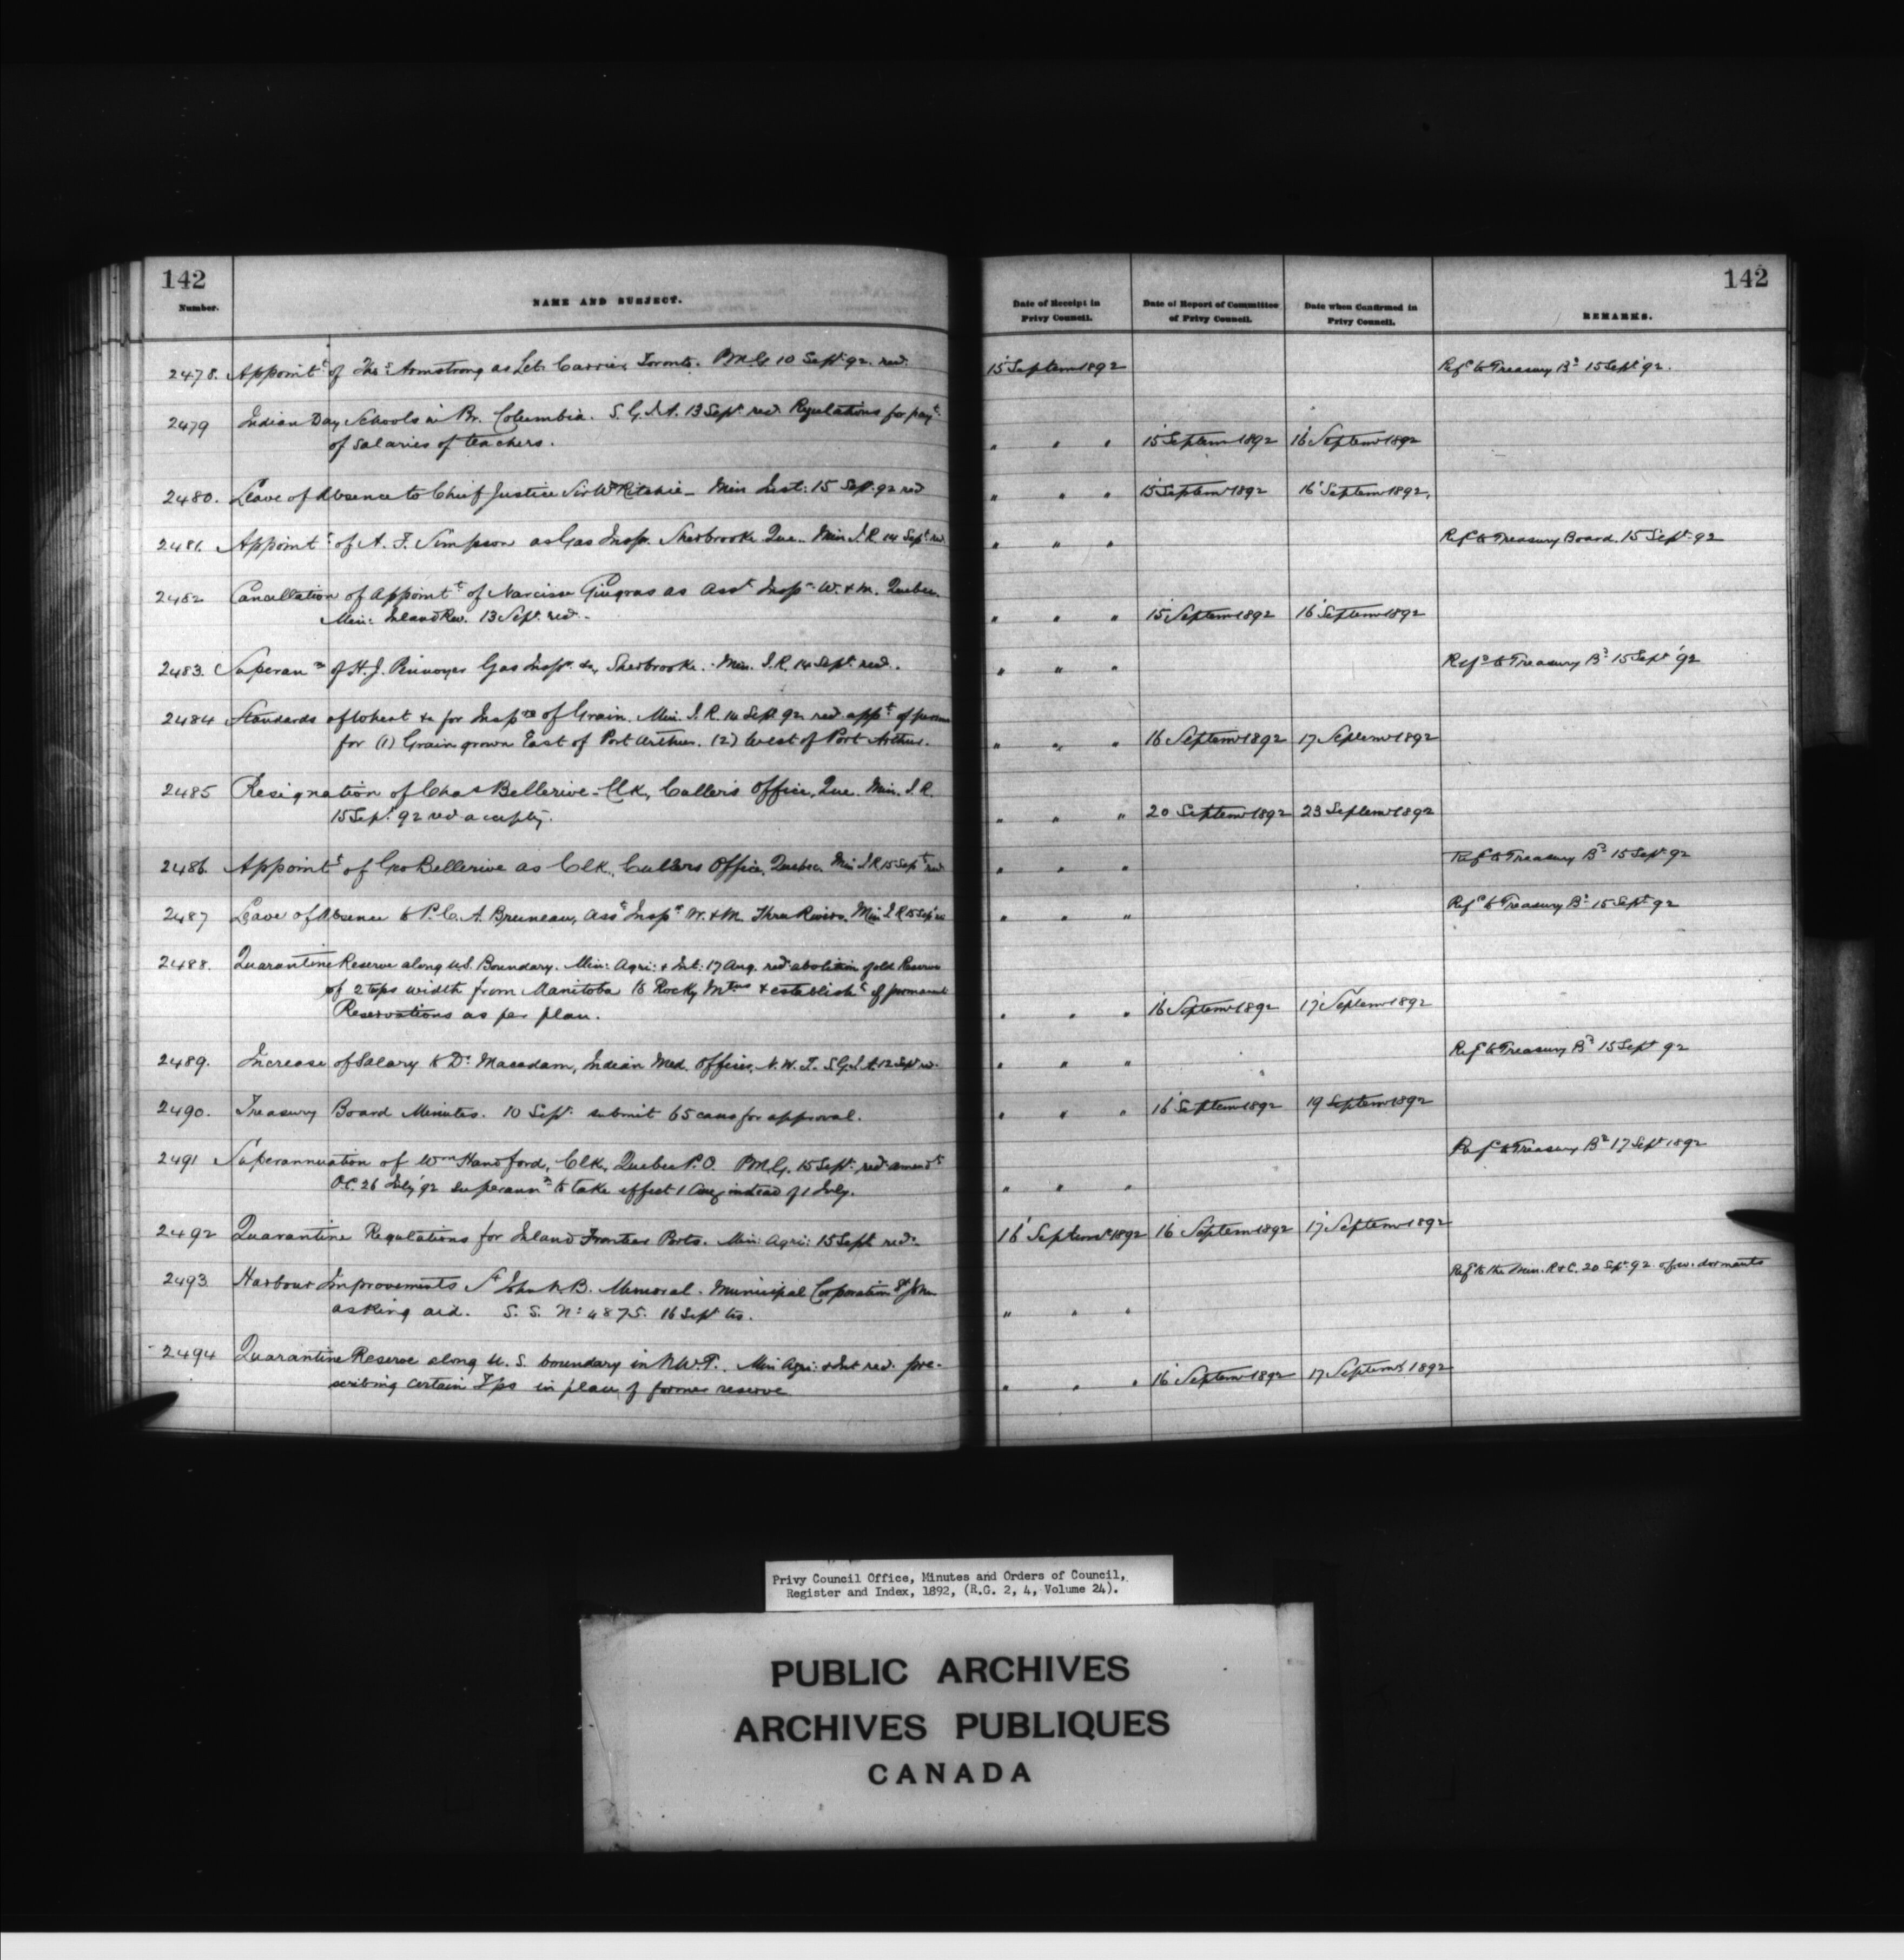 142
142
Number.
NAME AND SUBJECT.
Date of Receipt in Privy Council.
Date of Report of Committee of Privy Council.
Date when Confirmed in Privy Council.
REMARKS.
2478. Appointt of Thos Armstrong as Let. Carrier, Toronto. P.M.G. 10 Sept. 92. red. 15 Septem 1892 Refd to Treasury Bd 15 Sept '92.
2479 Indian Day Schools in Br. Columbia. S.G.I.A. 13 Sept. red. Regulations for payt
of salaries of teachers. " " " 15 Septem 1892 16 Septemr 1892
2480. Leave of Absence to Chief Justice Sir W Ritchie - Min Just: 15 Sept. 92 red " " " 15 Septemr 1892 16 Septemr 1892.
2481. Appointt of A. F. Simpson as Gas Insp. Sherbrooke Que. Min I.R. 14 Sept. red. " " " Refd to Treasury Board. 15 Sept. 92
2482 Cancellation of Appointt of Narcisse Gingras as Asst Inspr W. & M. Quebec.
Min: Inland Rev. 13 Sept. red. " " " 15 Septemr 1892 16 Septemr 1892
2483. Superann of H. J. Gas Inspr &c, Sherbrooke. Min. I.R. 14 Sept. red. " " " Refd to Treasury Bd 15 Sept '92
2484 Standards of Wheat &c for Inspn of Grain. Min. I.R. 14 Sept 92 red appt of persons
for (1) Grain grown East of Port Arthur. (2) West of Port Arthur. " " " 16 Septemr 1892 17 Septemr 1892
2485 Resignation of Chas Bellerive - Clk, Cullers Office, Que. Min. I.R.
15 Sept. 92 red accepting. " " " 20 Septemr 1892 23 Septemr 1892
2486. Appointt of Geo Bellerive as Clk., Cullers Office, Quebec. Min I R 15 Sept red " " " Refd to Treasury Bd 15 Sept 92
2487 Leave of Absence to P. C. A. Bruneau, Asst Inspr W. & M. Three Rivers. Min I R 15 Sept red " " " Refd to Treasury Bd 15 Sept. 92
2488. Quarantine Reserve along U.S. Boundary. Min: Agri: & Int: 17 Aug. red abolition of old Reserve
of 2 tps width from Manitoba to Rocky Mtns & establisht of permanent
Reservations as per plan. " " " 16 Septemr 1892 17 Septemr 1892
2489. Increase of Salary to Dr Macadam, Indian Med. Officer, N.W.T. S.G.I.A. 12 Sept red. " " " Refd to Treasury Bd 15 Sept 92
2490. Treasury Board Minutes. 10 Sept. submit 65 cases for approval. " " " 16 Septemr 1892 19 Septemr 1892
2491 Superannuation of Wm Handford, Clk, Quebec P.O. P.M.G. 15 Sept. red amendt
O.C. 26 July '92 superannn to take effect 1 Aug instead of 1 July. " " " Refd to Treasury Bd 17 Sept 1892
2492 Quarantine Regulations for Inland Frontier Ports. Min: Agri: 15 Sept red. 16 Septemr 1892 16 Septemr 1892 17 Septemr 1892
2493 Harbour Improvements St John N.B. Memorial. Municipal Corporation St John
asking aid. S.S. No: 4875. 16 Sept " " " Refd to the Min. R & C. 20 Sept. 92
2494 Quarantine Reserve along U.S. boundary in N.W.T. Min Agri: & Int red. pre-
scribing certain Tps in place of former reserve " " " 16 Septemr 1892 17 Septemr 1892
Privy Council Office, Minutes and Orders of Council,
Register and Index, 1892, (R.G. 2, 4, Volume 24).
PUBLIC ARCHIVES
ARCHIVES PUBLIQUES
CANADA